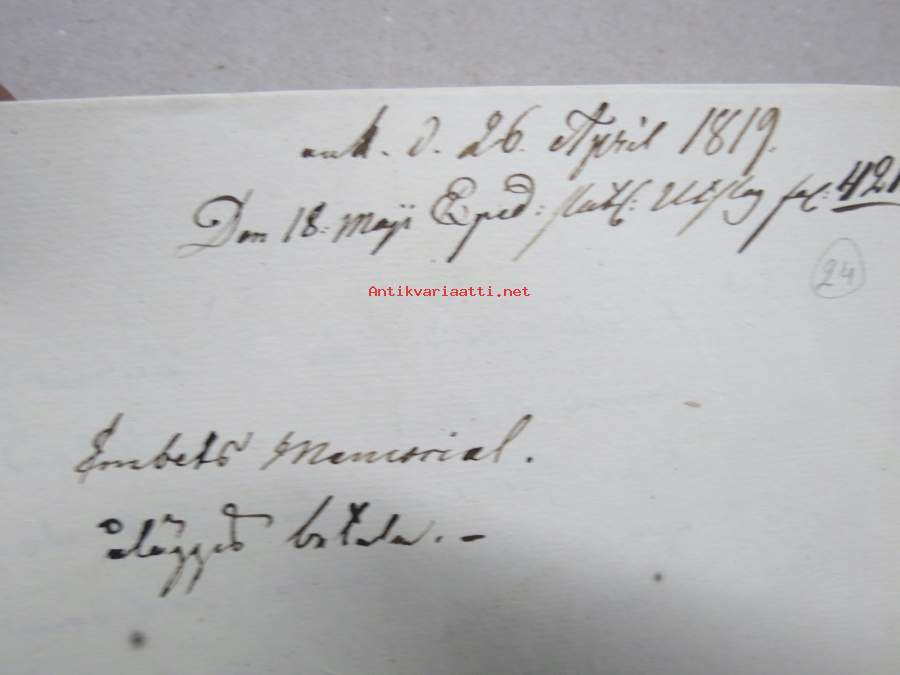 ank. d. 26. April 1819.
Den 18: Maji Exped: Utslag fol: 421
24
Antikvariaatti.net
Embets Memorial.
ålägges betala. –